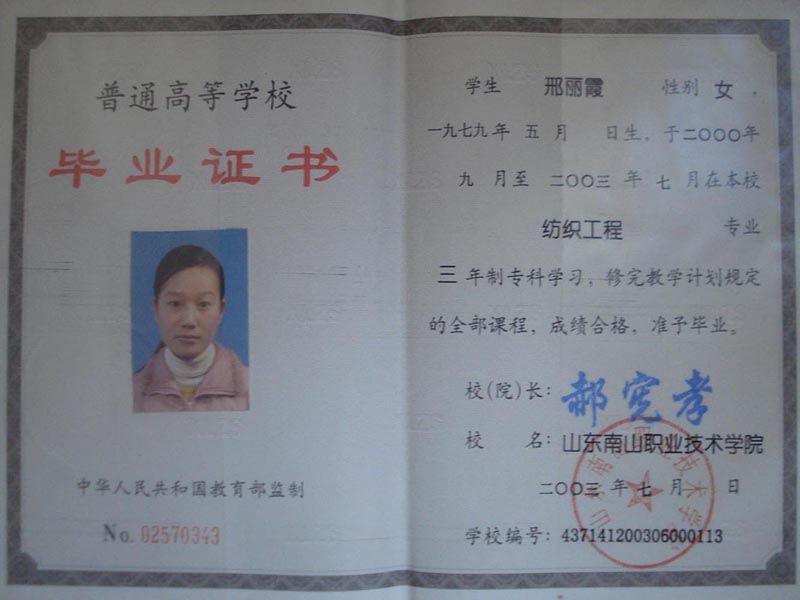 普通高等学校
毕业证书
中华人民共和国教育部监制
No. 02570343
学生 邢丽霞 性别 女 ,
一九七九年 五 月 日生, 于二〇〇〇年
九 月至 二〇〇三 年 七 月在本校
纺织工程 专业
三 年制专科学习, 修完教学计划规定
的全部课程, 成绩合格, 准予毕业。
校(院)长: 郝宪孝
校 名: 山东南山职业技术学院
二〇〇三 年 七 月 日
学校编号: 437141200306000113